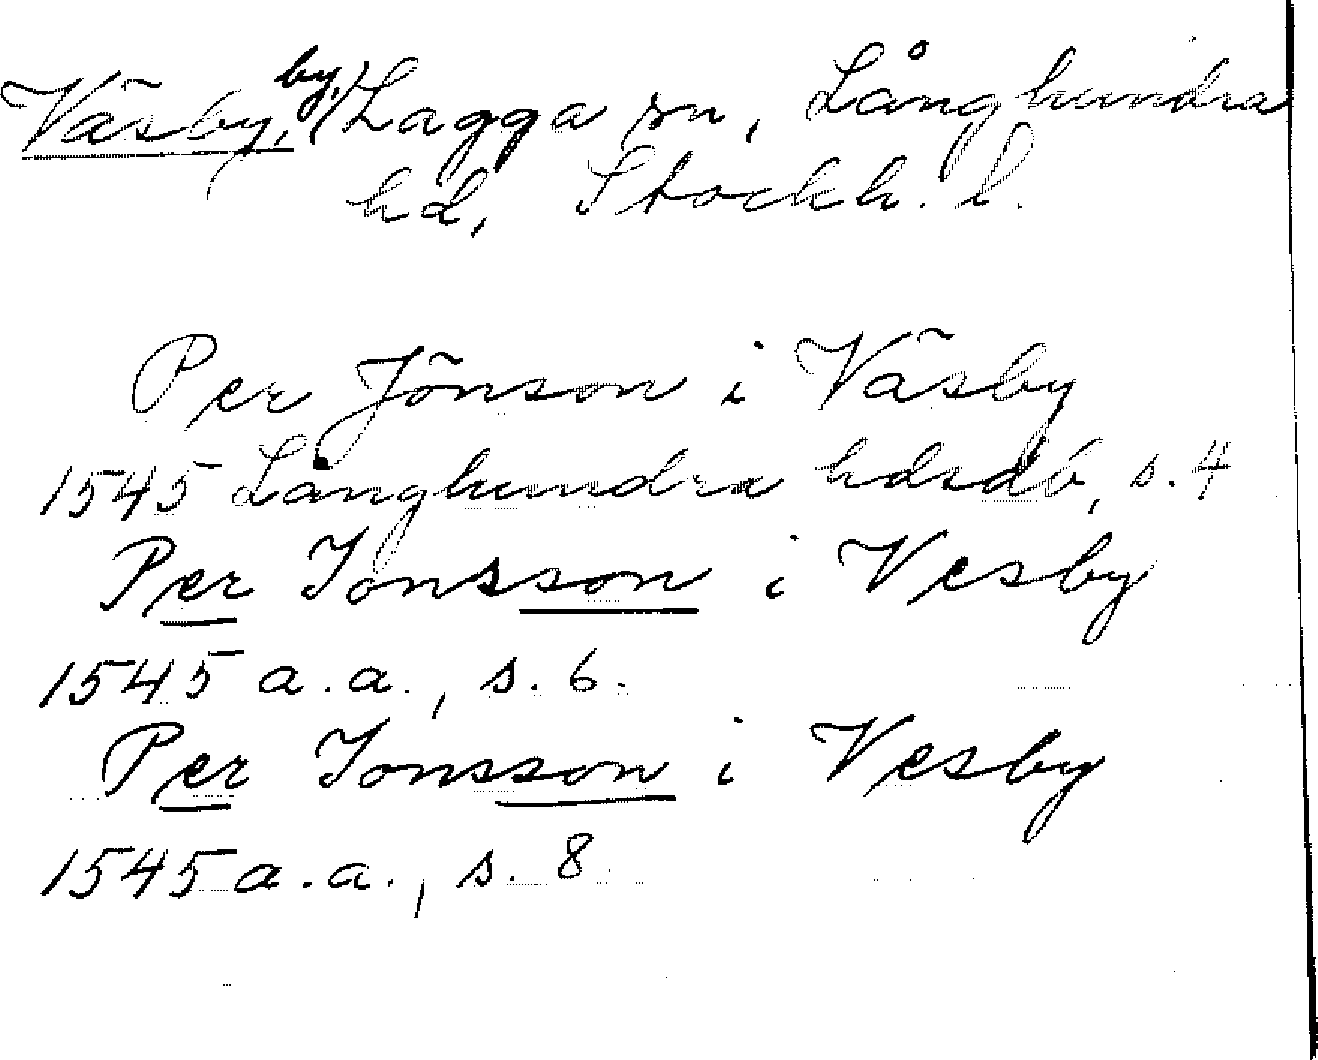 Väsby, by, Lagga sn, Långhundra
hd, Stockh. l.
Per Jönson i Väsby
1545 Långhundra hdsdb, s. 4
Per Jonsson i Vesby
1545 a.a., s. 6.
Per Jonsson i Vesby
1545 a.a., s. 8